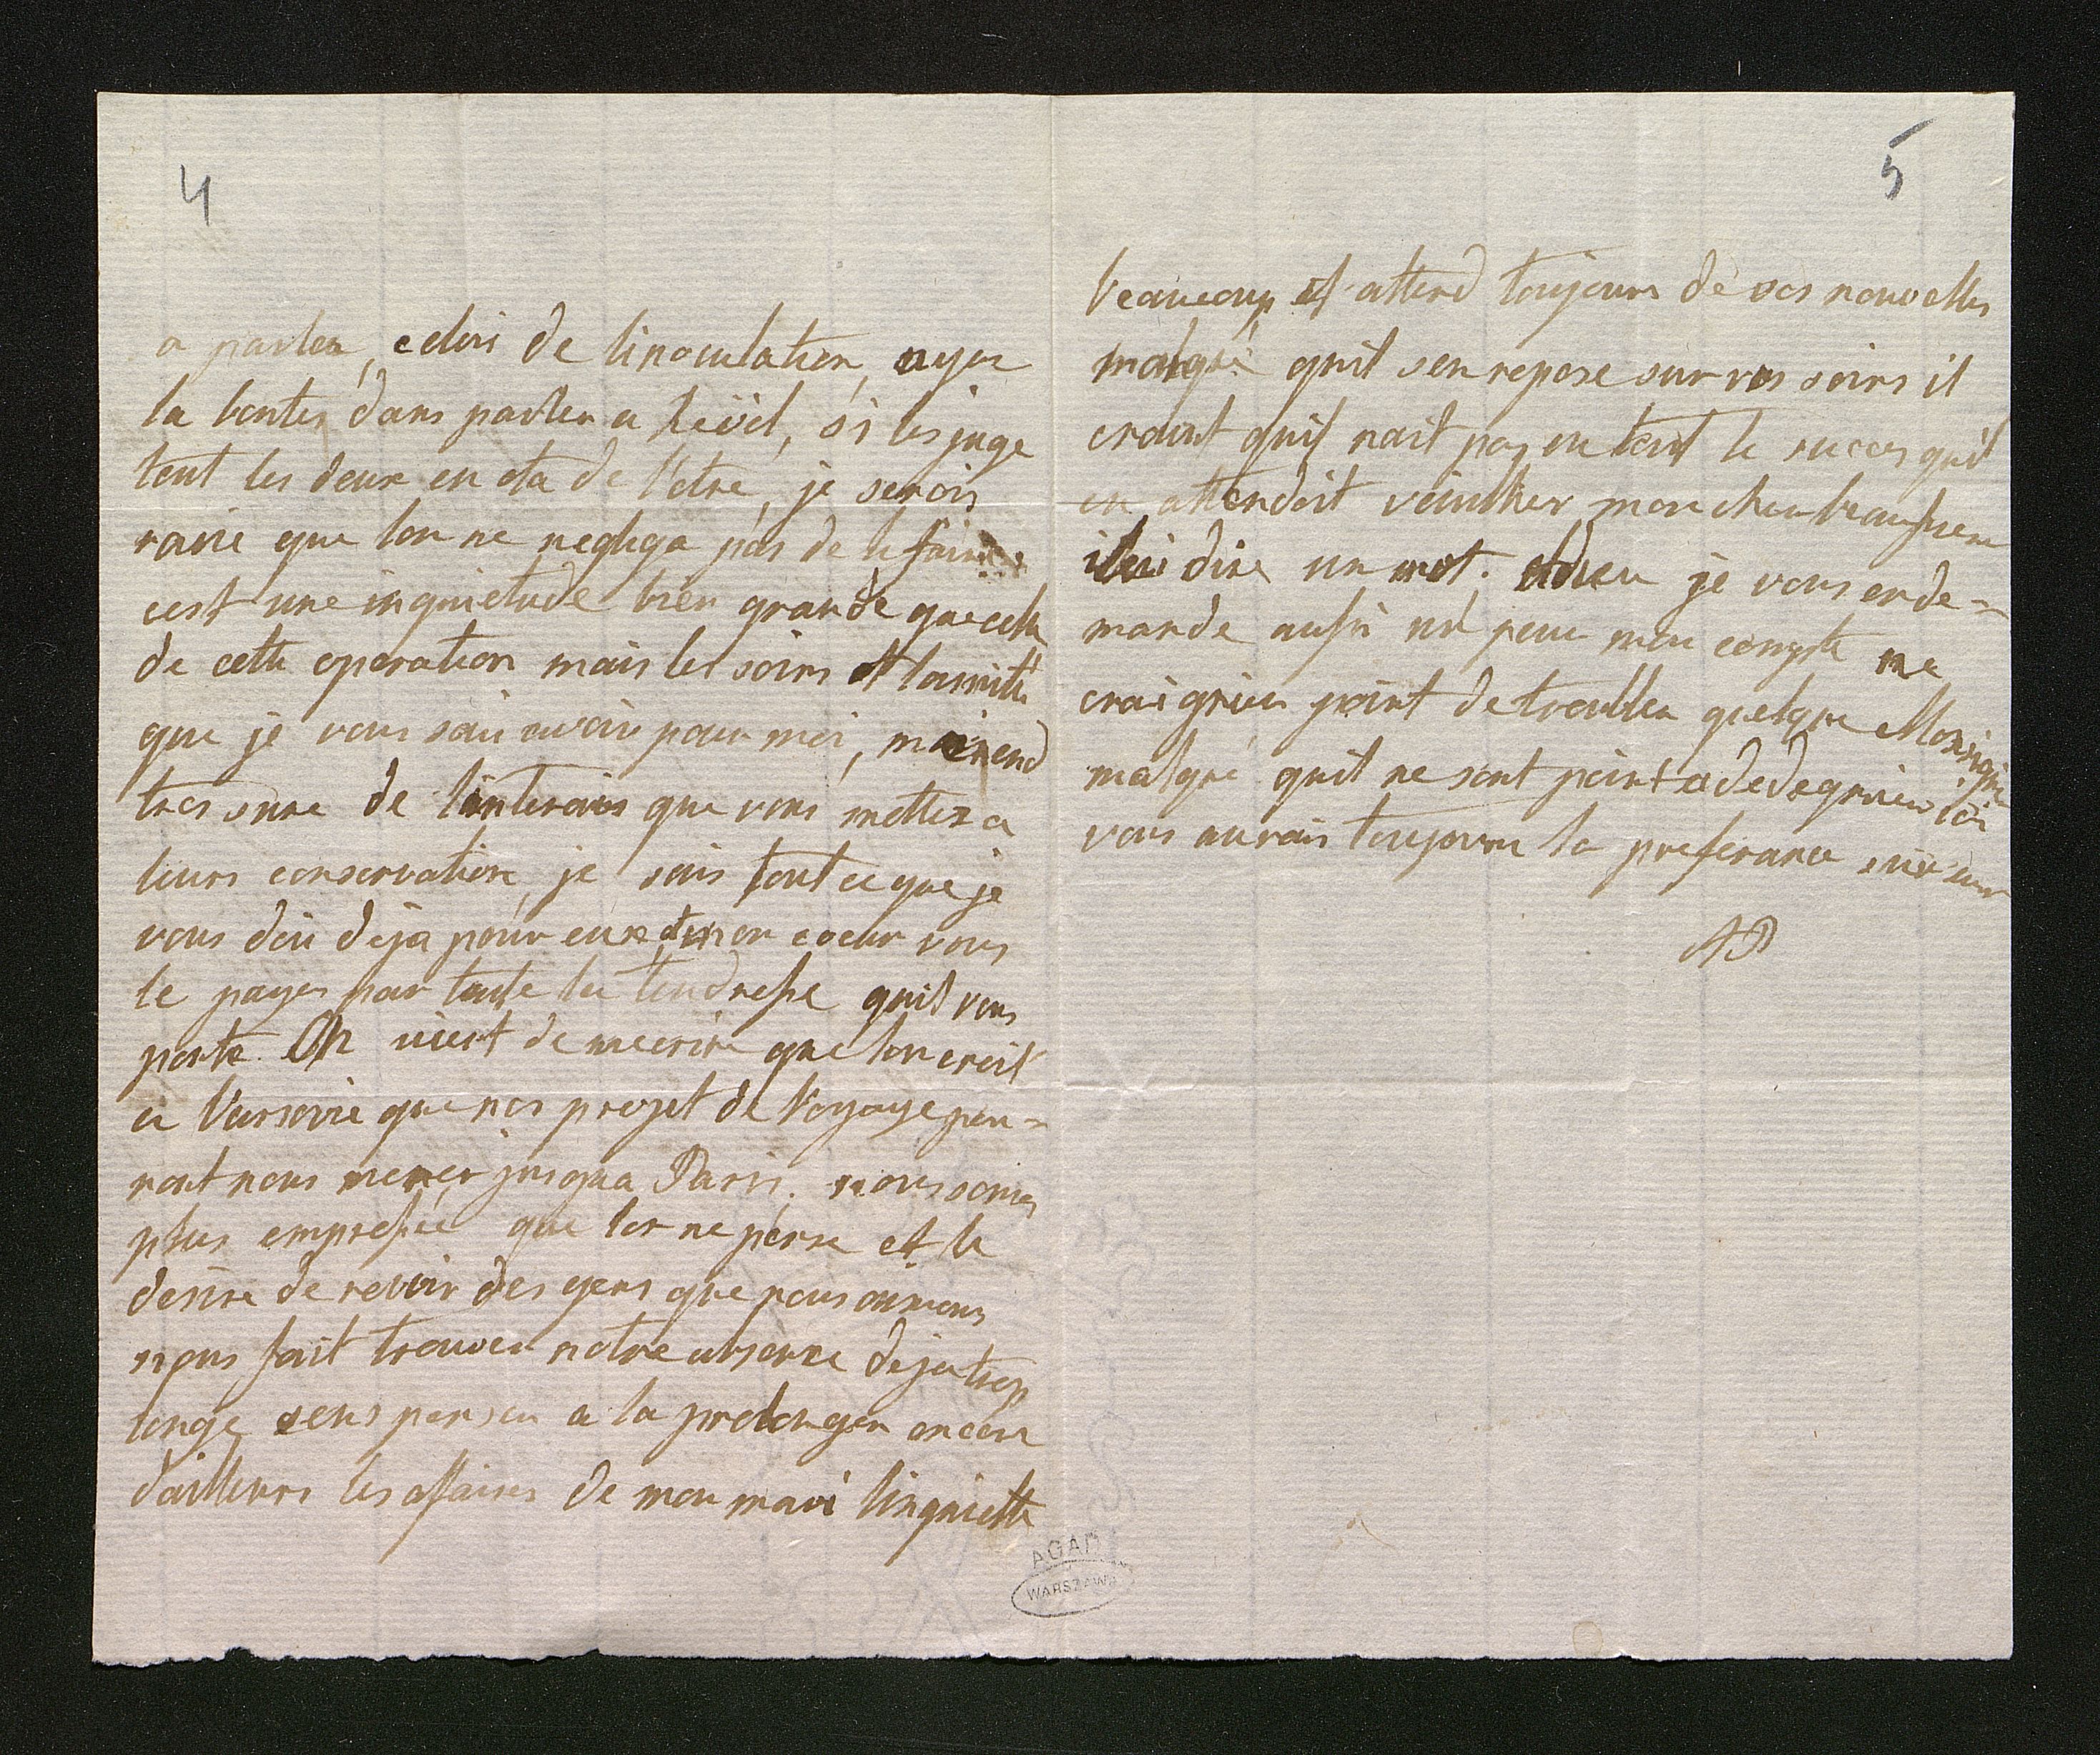 4
a parler, celui de linoculation, ayez
la bontes dans parler a , si les juge
tout les deux en eta de l'etre, je serois
ravie que lon ne negliga pas de le faire
cest une inquietude bien grande que celle
de cette operation mais les soins et lamitié
que je vous sai avoir pour moi, me rend
tres sure de linterais que vous mettez a
leurs conservation, je sais tout ce que je
vous doi deja pour eux et mon coeur vous
le payes par toute la tendresse quil vous
porte. On vient de mecrire que lon croit
a Varsovie que nos projet de Voyage pou=
ront nous mener jusqua Paris. nous somes
plus empressée que lon ne pense et le
desire de revoir des gens que nous aimons
nous fait trouver notre absence deja trop
longe sens penser a la prolonger encore
dailleurs les affaires de mon mari linquiette
AGAD
WARSZAWA
5
beaucoup et attend toujours de vos nouvelles
malgré quil sen repose sur vos soins il
craint quil nait pas eu tout le succes quil
en attendoit veuilliez mon cher beaufrere
lui dire un mot. adieu je vous en de=
mande aussi un pour mon compte ne
craigniez point de troubler quelque Monsieigne
malgré quil ne sont point a dedegnier
vous aurais toujours la preferance sur eux
AP